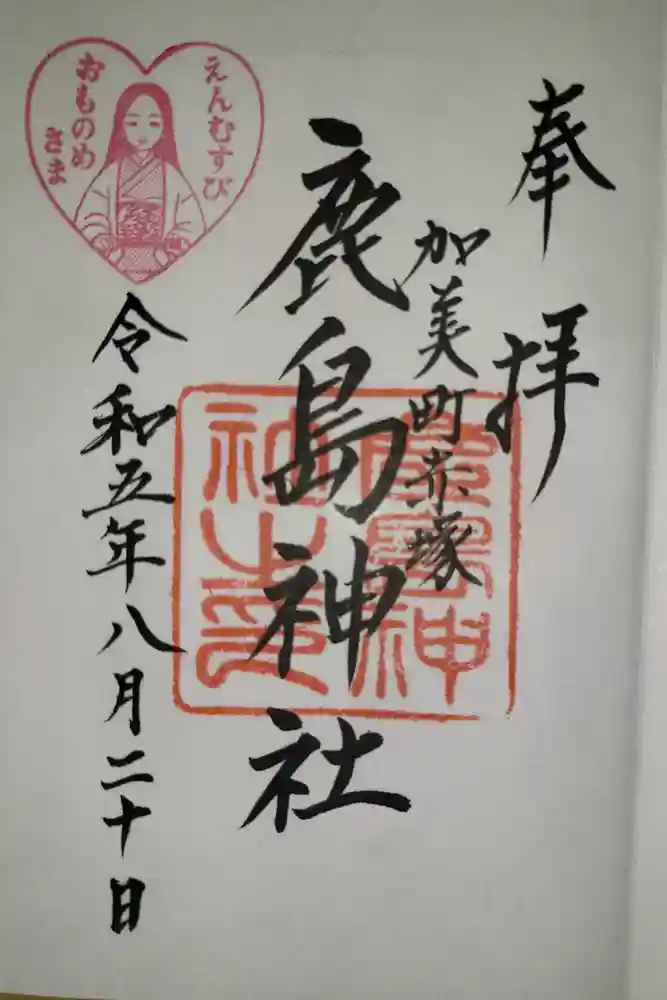 奉拝
加美町赤塚
鹿島神社
鹿島神社之印
えんむすび
おものめ
さま
令和五年八月二十日